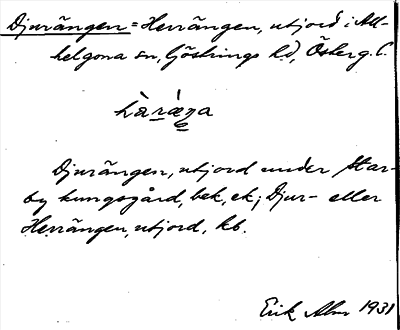 Djurängen = Herrängen, utjord i All-
helgona sn, Göstrings hd, Österg. l.
hàráŋa
Djurängen, utjord under Star-
by kungsgård, bek, ek; Djur- eller
Herrängen, utjord, kb.
Erik Alm 1931